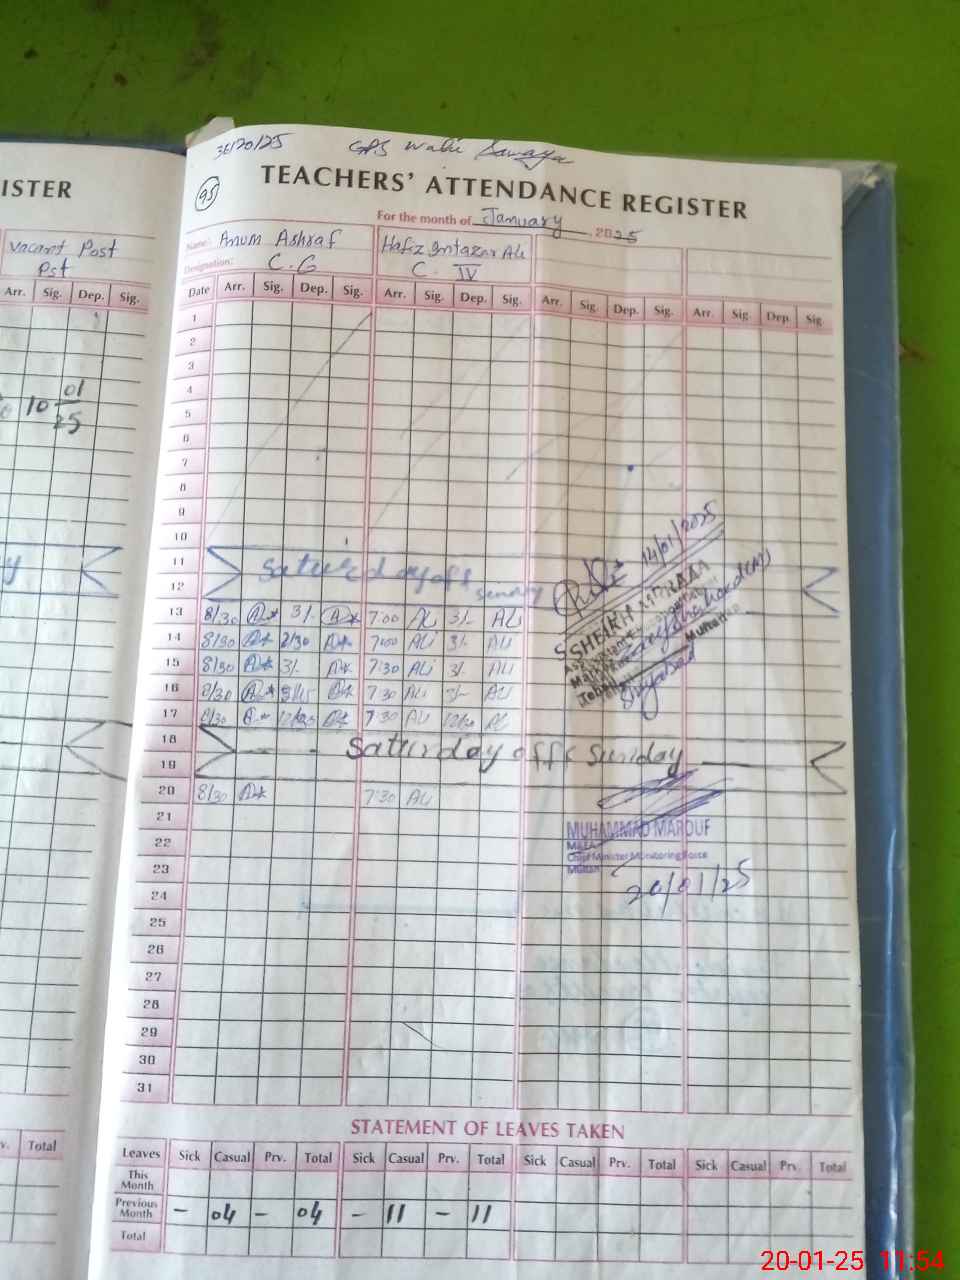 ISTER
Vacant Post
Pst
Arr. Sig. Dep. Sig.
10 01
25
v. Total
GPS
TEACHERS' ATTENDANCE REGISTER
95
For the month of January, 2025
Name: Anum Ashraf Hafiz Intazar Ali
Designation: C.G C. IV
Date Arr. Sig. Dep. Sig. Arr. Sig. Dep. Sig. Arr. Sig. Dep. Sig. Arr. Sig Dep. Sig
1
2
3
4
5
6
7
8
9
10
11 Saturday off
12 sunday
13 8/30 3/- 7:00 AL 3/- AL
14 8/30 2/30 7:00 AL 3/- AL
15 8/30 3/- 7:30 ALi 3/- AL
16 8/30 7:30 ALi 3/- AL
17 8/30 7:30 ALi AL
18 Saturday off Sunday
19
20 8/30 7:30 ALi
21
22
23
24
25
26
27
28
29
30
31
14/01/2025
SHEIKH
MUHAMMAD MAROUF
Chief Minister Monitoring Force
20/01/25
STATEMENT OF LEAVES TAKEN
Leaves Sick Casual Prv. Total Sick Casual Prv. Total Sick Casual Prv. Total Sick Casual Prv. Total
This Month
Previous Month - 04 - 04 - 11 - 11
Total
20-01-25 11:54